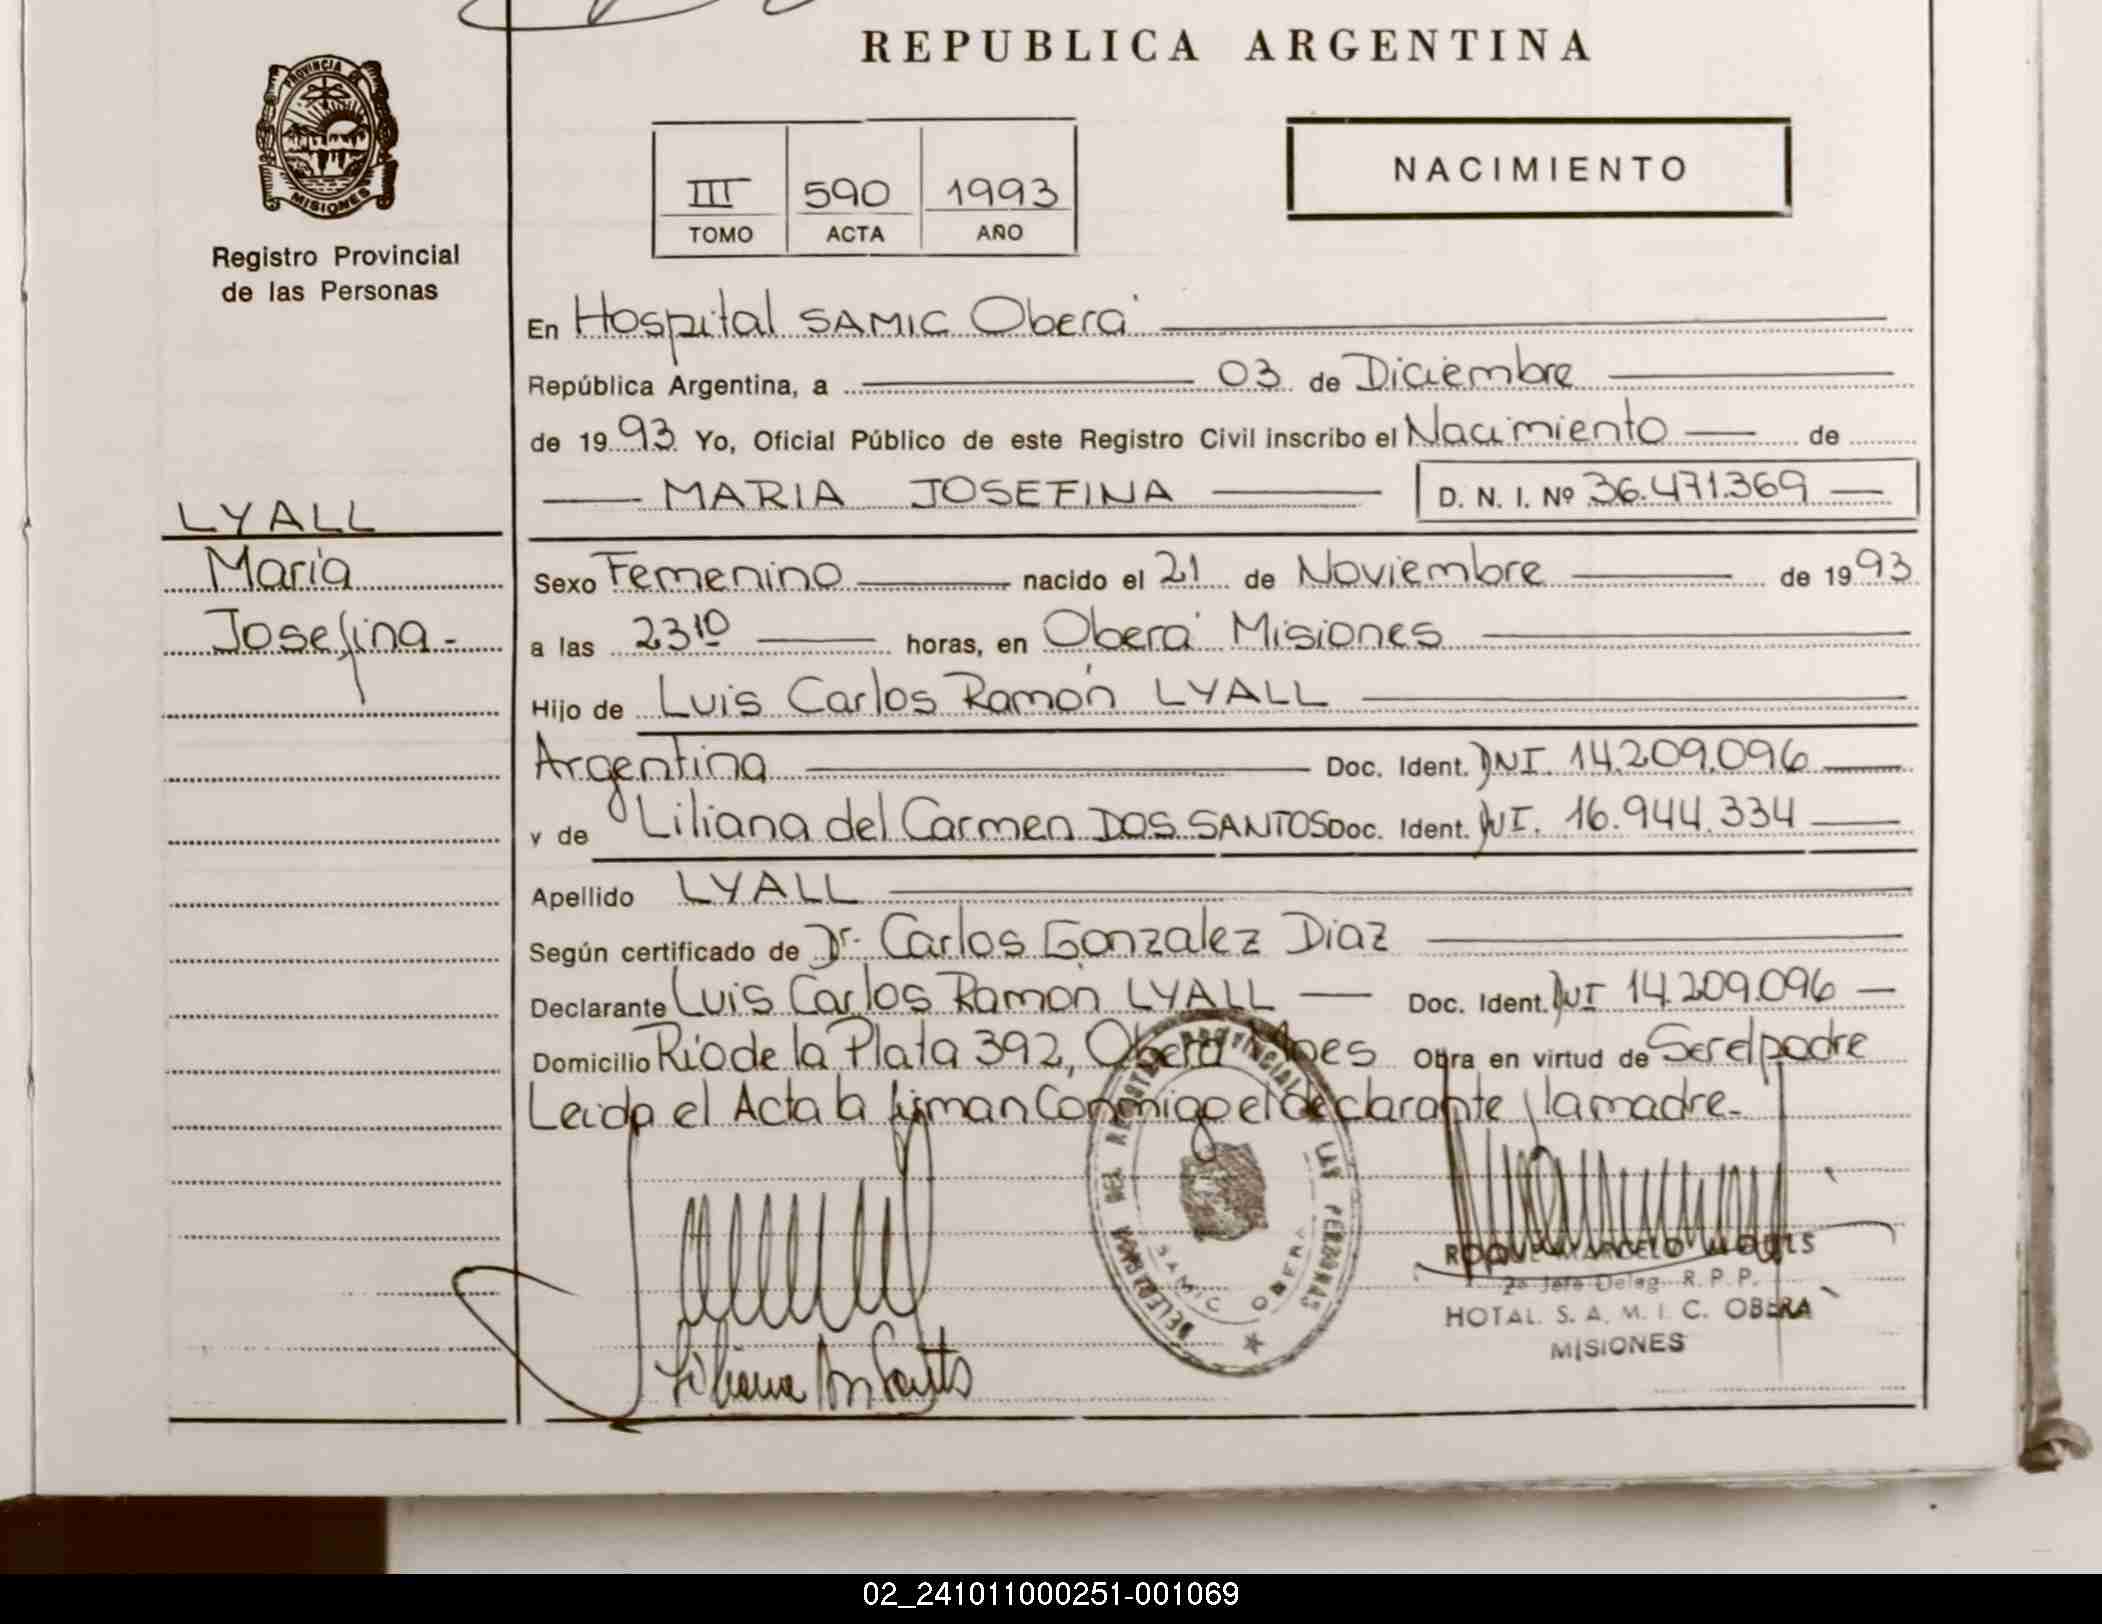 REPUBLICA ARGENTINA
PROVINCIA DE
MISIONES
Registro Provincial
de las Personas
III 590 1993
TOMO ACTA AÑO
NACIMIENTO
LYALL
Maria
Josefina-
En Hospital SAMIC Oberá
República Argentina, a 03 de Diciembre
de 1993 Yo, Oficial Público de este Registro Civil inscribo el Nacimiento de
MARIA JOSEFINA D. N. I. Nº 36.471.369
Sexo Femenino nacido el 21 de Noviembre de 1993
a las 23¹⁰ horas, en Oberá Misiones
Hijo de Luis Carlos Ramón LYALL
Argentina Doc. Ident. DNI. 14.209.096
y de Liliana del Carmen DOS SANTOS Doc. Ident. DNI. 16.944.334
Apellido LYALL
Según certificado de Dr. Carlos Gonzalez Diaz
Declarante Luis Carlos Ramón LYALL Doc. Ident. DNI 14.209.096
Domicilio Rio de la Plata 392, Oberá Mnes Obra en virtud de Ser el padre
Leida el Acta la firman Conmigo el declarante y la madre-
DELEGACION DEL REGISTRO PROVINCIAL DE LAS PERSONAS
SAMIC OBERA
Liliana Dos Santos
ROQUE MARCELO
2º Jefe Deleg. R. P. P.
HOTAL. S. A. M. I. C. OBERA
MISIONES
02_241011000251-001069